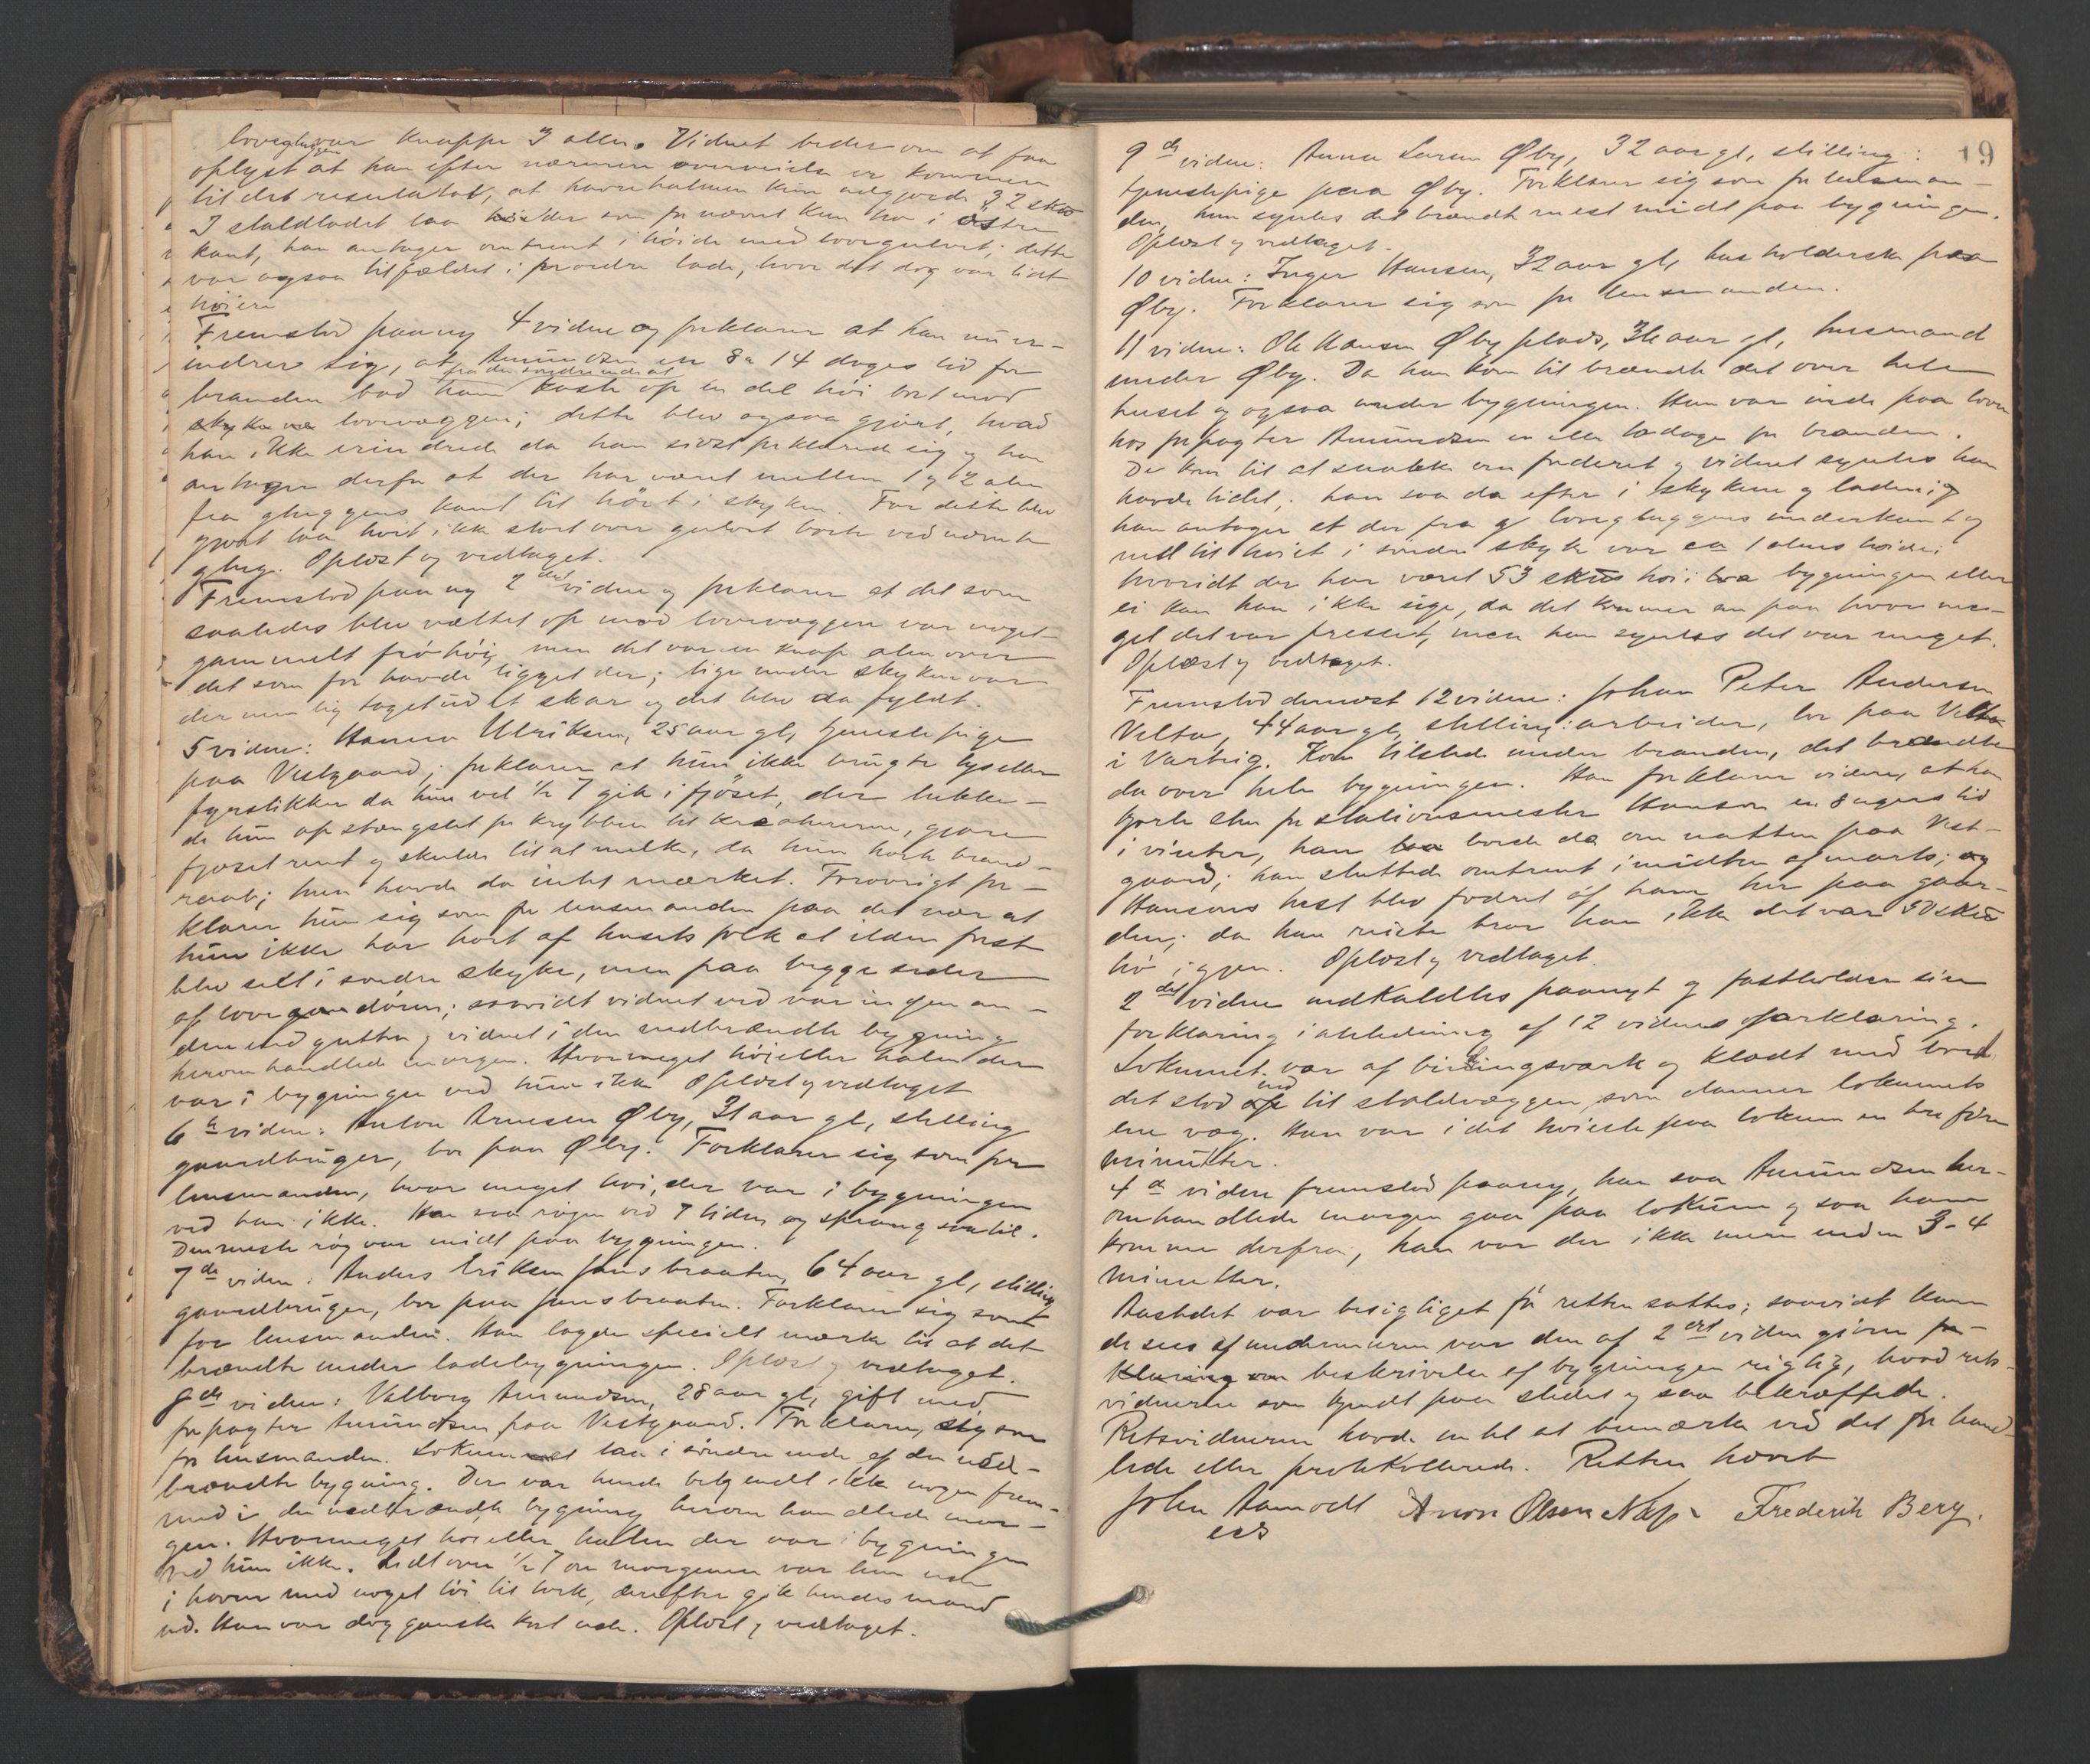 loveglüggen var knappe 3 allen. Vidnet beder om at faa
oplyst at han efter nærmere overveielse er kommen
til det resultatet, at havrehalmen kun udgjorde 32 skŭ
I staldladet laa der som før nævnt kun hø i østre
kant, han antager omtrent i høide med lovegulvet; dette
var ogsaa tilfældet i søndre lade, hvor det dog var lidt
høiere
Fremstod paany 4 vidne og forklarer at han nu er-
indrer sig, at Amundsen en 8 a 14 dages tid før
branden bad ham fra den søndre ende af kaste op en del høi bort mod
lovevæggen; dette blev ogsaa gjort, hvad
han ikke erindrede da han sidst forklarede sig og han
antager derfor at der har været mellem 1 og ½ alen
fra gluggens kant til høit i skyken. Før dette blev
gjort laa høit ikke stort over gulvet borte ved nævnte
glug. Oplæst og vedtaget.
Fremstod paany 2det vidne og forklarer at det som
saaledes blev væltet op mod lovevæggen var noget
gammelt frøhøi, men det var en knap alen over
det som før havde ligget der; lige under skyken var
der nemlig taget ud et skar og det blev da fyldt.
5 vidne: Hanna Ulriksen, 25 aar gl, tjenestepige
paa Vestgaard; forklarer at hun ikke brugte lys eller
fyrstikker da hun vel ½ 7 gik i fjøset, der lukke-
de hun op stængslet for krybben til kreaturerne, gjorde
fjøset rent og skulde til at melke, da hun hørte brand-
raab; hun havde da intet mærket. Forøvrigt for-
klarer hun sig som for lensmanden paa det nær at
hun ikke har hørt af husets folk at ilden først
blev seet i søndre skyke, men paa begge sider
af lovedøren; saavidt vidnet ved var ingen an-
den end gutten og vidnet i den nedbrændte bygning
heromhandlede morgen. Hvormeget høi eller halm der
var i bygningen ved hun ikke Oplæst og vedtaget
6te vidne: Anton Arnesen Øby, 31 aar gl, stilling
gaardbruger, bor paa Øby. Forklarer sig som for
lensmanden, hvor meget høi, der var i bygningen
ved han ikke. Han saa røgen ved 7 tiden og sprang saa til.
Den meste røg var midt paa bygningen.
7de vidne: Anders Eriksen Jensbraaten, 64 aar gl, stilling
gaardbruger, bor paa Jensbraaten. Forklarer sig som
for lensmanden. Han lagde specielt mærke til at det
brændte under ladebygningen. Oplæst og vedtaget.
8de vidne: Valborg Amundsen, 28 aar gl, gift med
forpagter Amundsen paa Vestgaard. Forklarer sig som
for lensmanden. Lokummet laa i søndre ende af den ned-
brændte bygning. Der var hende bekjendt ikke nogen frem-
med i den nedbrændte bygning herom handlede mor-
gen. Hvormeget høi eller halm der var i bygningen
ved hun ikke. Lidt over ½ 7 om morgenen var hun ude
i haven med noget tøi til tørk, derefter gik hendes mand
ud. Han var dog ganske kort ude. Oplæst og vedtaget.
19
9de vidne: Anna Larsen Øby, 32 aar gl, stilling:
tjenestepige paa Øby. Forklarer sig som for lensman-
den, hun syntes det brændte mest midt paa bygningen.
Oplæst og vedtaget.
10 vidne: Inger Hansen, 32 aar gl, husholderske paa
Øby. Forklarer sig som for lensmanden.
11 vidne: Ole Hansen Øbyplads, 36 aar gl, husmand
under Øby. Da han kom til brændte det over hele
huset og ogsaa under bygningen. Han var inde paa loven
hos forpagter Amundsen en eller to dage før branden.
De kom til at snakke om foderet og vidnet syntes han
havde lidet; han saa da efter i skykene og laden og
han antager at der fra lovegluggens underkant og
ned til høiet i søndre skyke var ca 1 alens høide;
hvorvidt der har været 53 skŭs høi i bygningen eller
ei kan han ikke sige, da det kommer an paa hvor me-
get det var presset, men han syntes det var meget.
Oplæst og vedtaget.
Fremstod dernæst 12 vidne: Johan Peter Andersen
Velta, 44 aar gl, stilling: arbeider, bor paa Velta
i Varteig. Kom tilstede under branden, det brændte
da over hele bygningen. Han forklarer videre, at han
kjørte sten for stationsmester Hansen en 8 ugers tid
i vinter, han boede da om natten paa Vest-
gaard; han sluttede omtrent i midten af marts; og
Hansens hest blev fodret af ham her paa gaar-
den; da han reiste tror han ikke det var 50 skŭ
hø igjen. Oplæst og vedtaget.
2det vidne indkaldtes paanyt og fastholder sin
forklaring i anledning af 12 vidnes forklaring.
Lokummet var af bindingsværk og klædt med bord
det stod ind til staldvæggen, som danner lokummets
ene væg. Han var i det høieste paa lokum en tre fire
minutter.
4de vidne fremstod paany, han saa Amundsen her-
omhandlede morgen gaa paa lokum og saa ham
komme derfra, han var der ikke mere enden 3-4
minutter.
Aastedet var besigtiget før retten sattes; saavidt kunn
de sees af undermuren var den af 2det vidne givne for-
klaring beskrivelse af bygningen rigtig, hvad rets-
vidnerne som kjendt paa stedet og saa bekræftede.
Retsvidnerne havde intet at bemærke ved det for hand-
lede eller protokollerede. Retten hævet
John Aamodt Anon Olsen Næs Frederik Berg.
ess